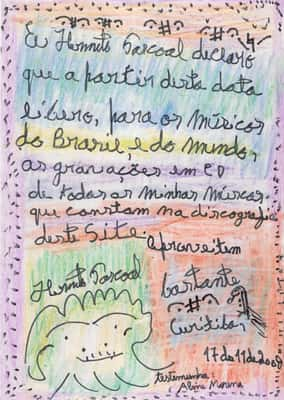 Eu Hermeto Pascoal declaro
que a partir desta data
libero, para os Músicos
do Brasil, e do mundo,
as gravações em CD
de todas as minhas músicas
que constam na discografia
deste Site. Aproveitem
bastante
Hermeto Pascoal
Curitiba,
17 de 11 de 2008
testemunha: Aline Morena